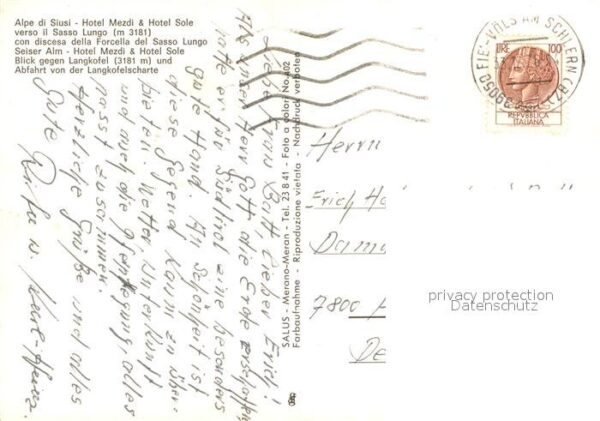 Alpe di Siusi - Hotel Mezdi & Hotel Sole
verso il Sasso Lungo (m 3181)
con discesa della Forcella del Sasso Lungo
Seiser Alm - Hotel Mezdi & Hotel Sole
Blick gegen Langkofel (3181 m) und
Abfahrt von der Langkofelscharte
Liebe Frau Batt, lieber Erich!
Als unser Herr Gott die Erde erschaffen
hatte er für Südtirol eine besonders
gute Hand. An Schönheit ist
diese Gegend kaum zu über-
bieten. Wetter, Unterkunft
und auch die Verpflegung, alles
passt zusammen!
Herzliche Grüße und alles
Gute
u. Karl-Heinz
SALUS - Merano-Meran - Tel. 23 8 41 - Foto a colori No. A02
Farbaufnahme - Riproduzione vietata - Nachdruck verboten
39050 FIE'-VÖLS AM SCHLERN (BZ)
LIRE 100
REPVBBLICA
ITALIANA
Herrn
Erich
7800
privacy protection
Datenschutz